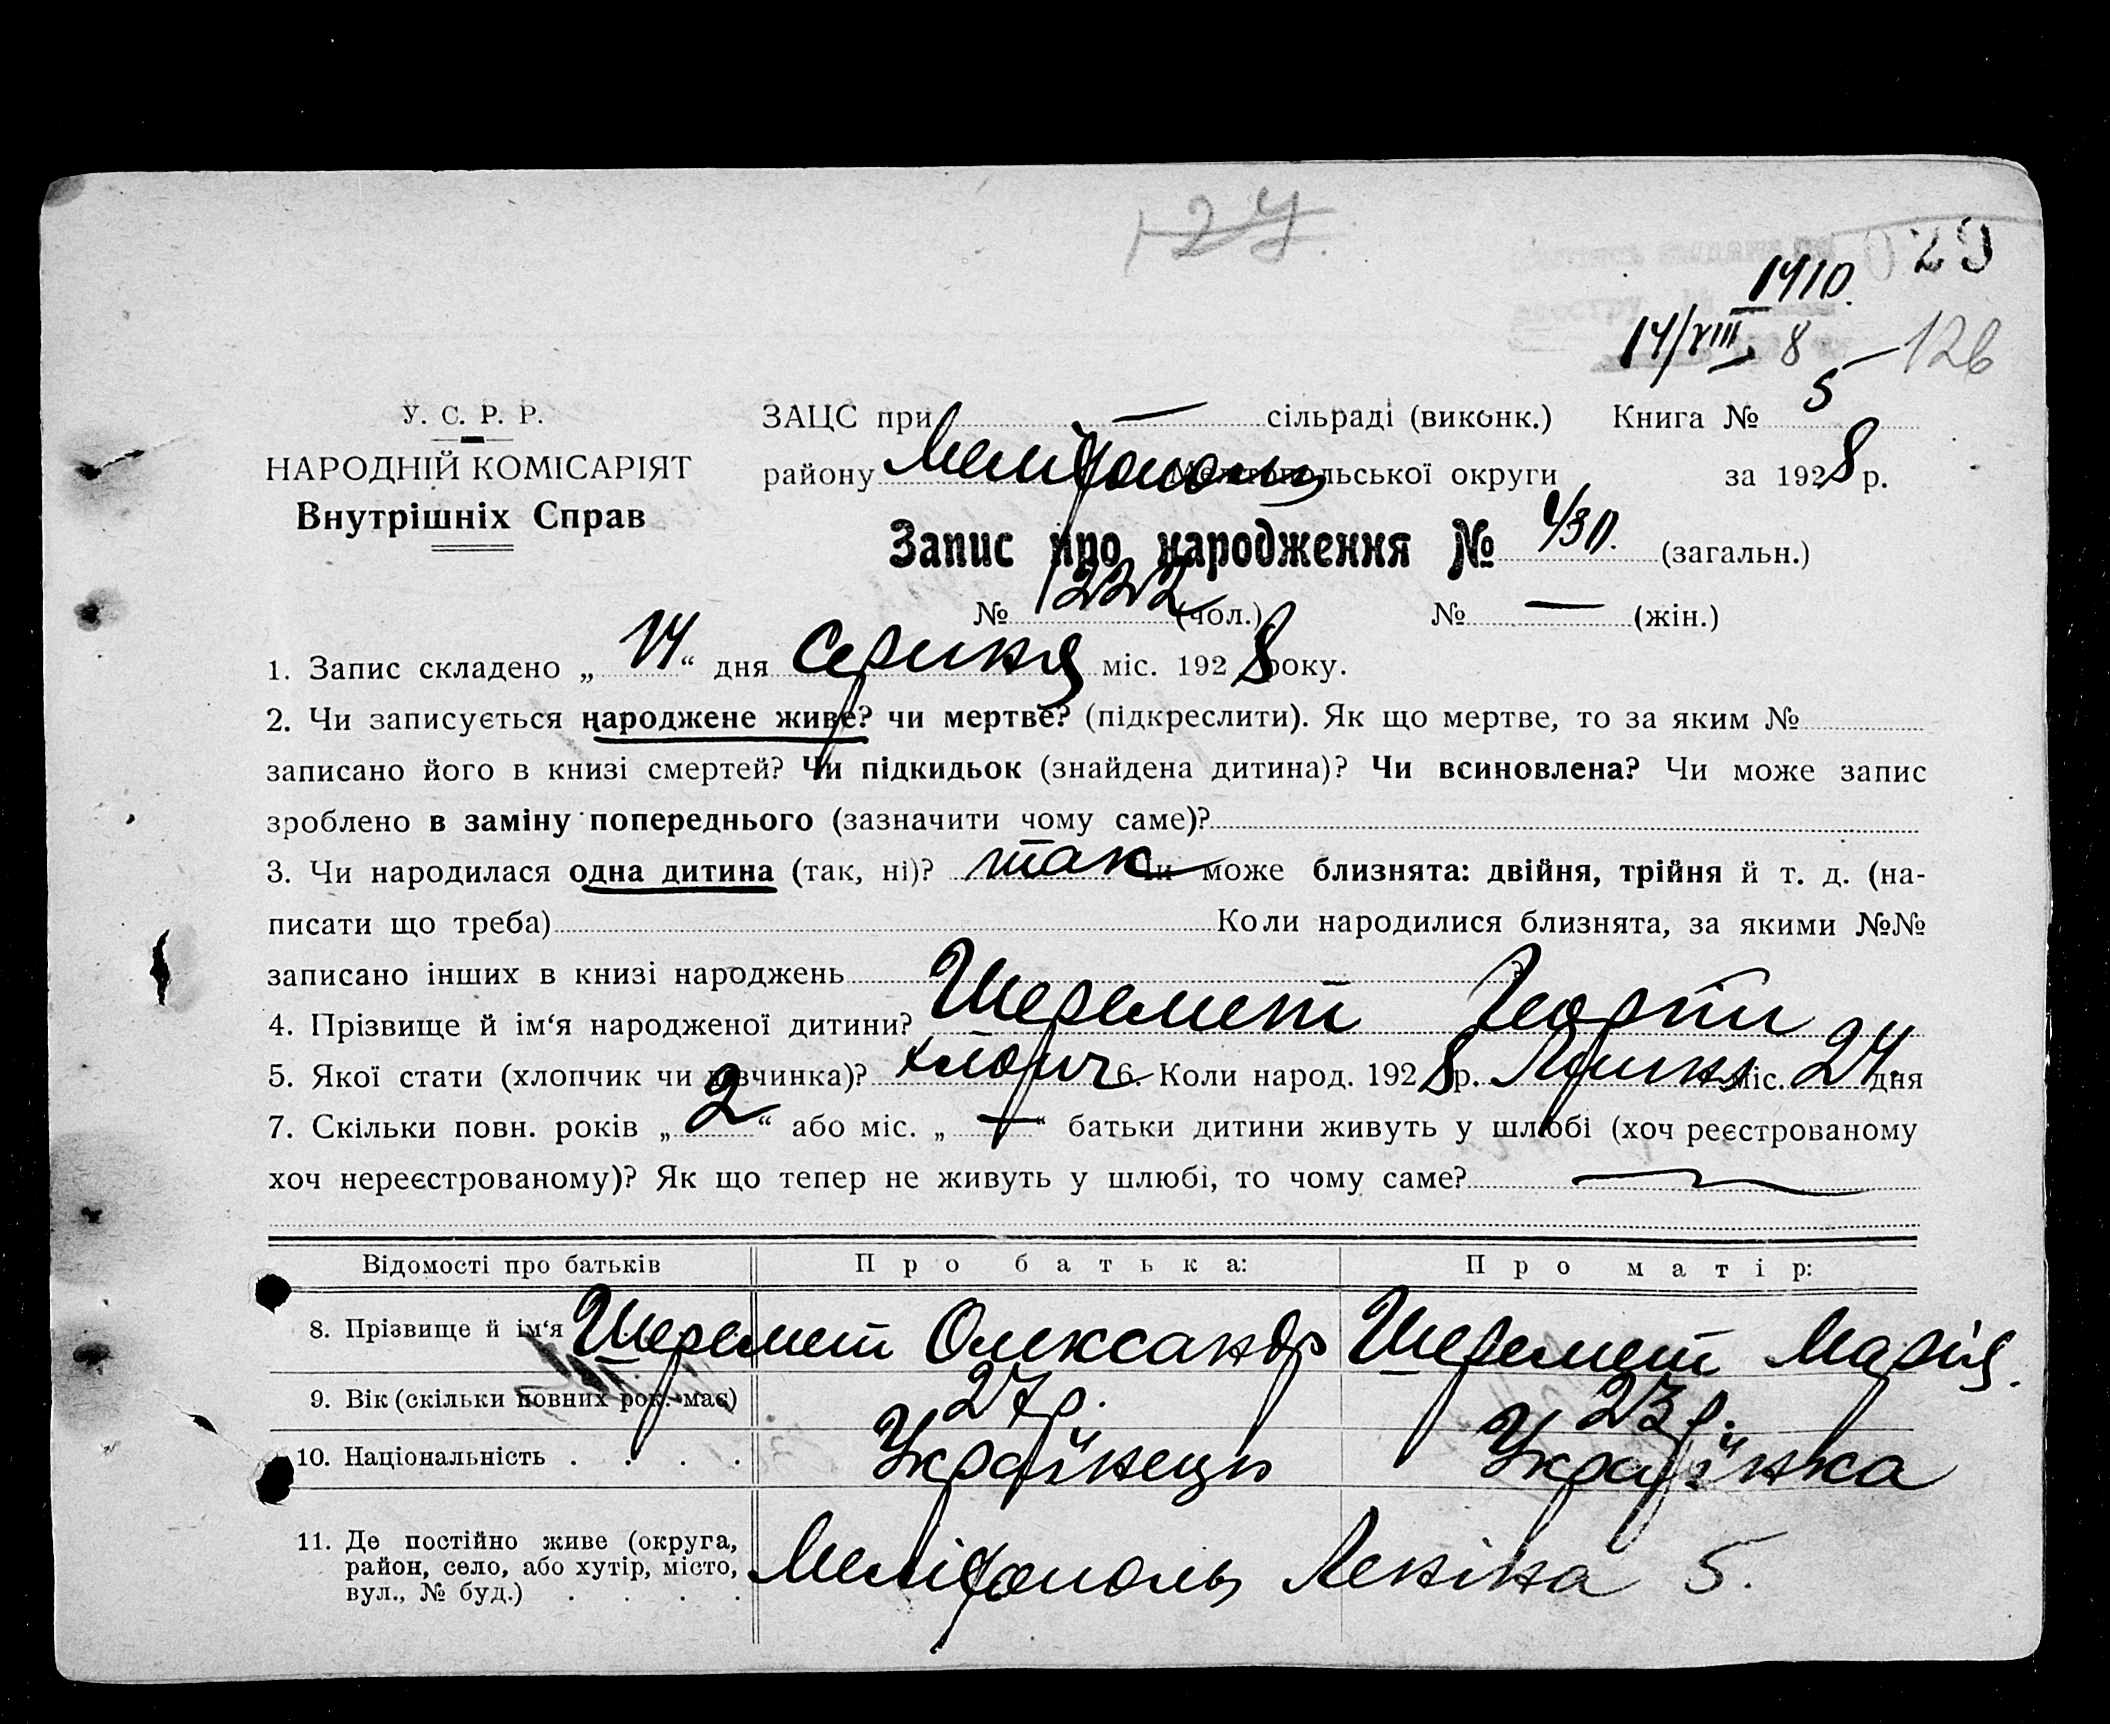 127.
029
1410.
14/VIII 8
126
У. С. Р. Р.
НАРОДНІЙ КОМІСАРІЯТ
Внутрішніх Справ
ЗАЦС при — сільраді (виконк.) Книга № 5
району Меліτополь Мелітопольської округи за 1928 р.
Запис про народження № 430. (загальн.)
№ 222 (чол.) № — (жін.)
1. Запис складено „14“ дня Серпня міс. 1928 року.
2. Чи записується народжене живе? чи мертве? (підкреслити). Як що мертве, то за яким №
записано його в книзі смертей? Чи підкидьок (знайдена дитина)? Чи всиновлена? Чи може запис
зроблено в заміну попереднього (зазначити чому саме)?
3. Чи народилася одна дитина (так, ні)? так Чи може близнята: двійня, трійня й т. д. (на-
писати що треба) Коли народилися близнята, за якими №№
записано інших в книзі народжень ?
4. Прізвище й ім‘я народженої дитини? Шеремет Георгій
5. Якої стати (хлопчик чи дівчинка)? хлопч 6. Коли народ. 1928 р. Липня міс. 24 дня
7. Скільки повн. років „2“ або міс. „—“ батьки дитини живуть у шлюбі (хоч реєстрованому
хоч нереєстрованому)? Як що тепер не живуть у шлюбі, то чому саме? —
Відомості про батьків Про батька: Про матір:
8. Прізвище й ім‘я Шеремет Олександр Шеремет Марія.
9. Вік (скільки повних рок. має) 27 р. 23 р.
10. Національність . . . . Українець Українка
11. Де постійно живе (округа,
район, село, або хутір, місто,
вул., № буд.) . . . . Мелітополь Леніна 5.